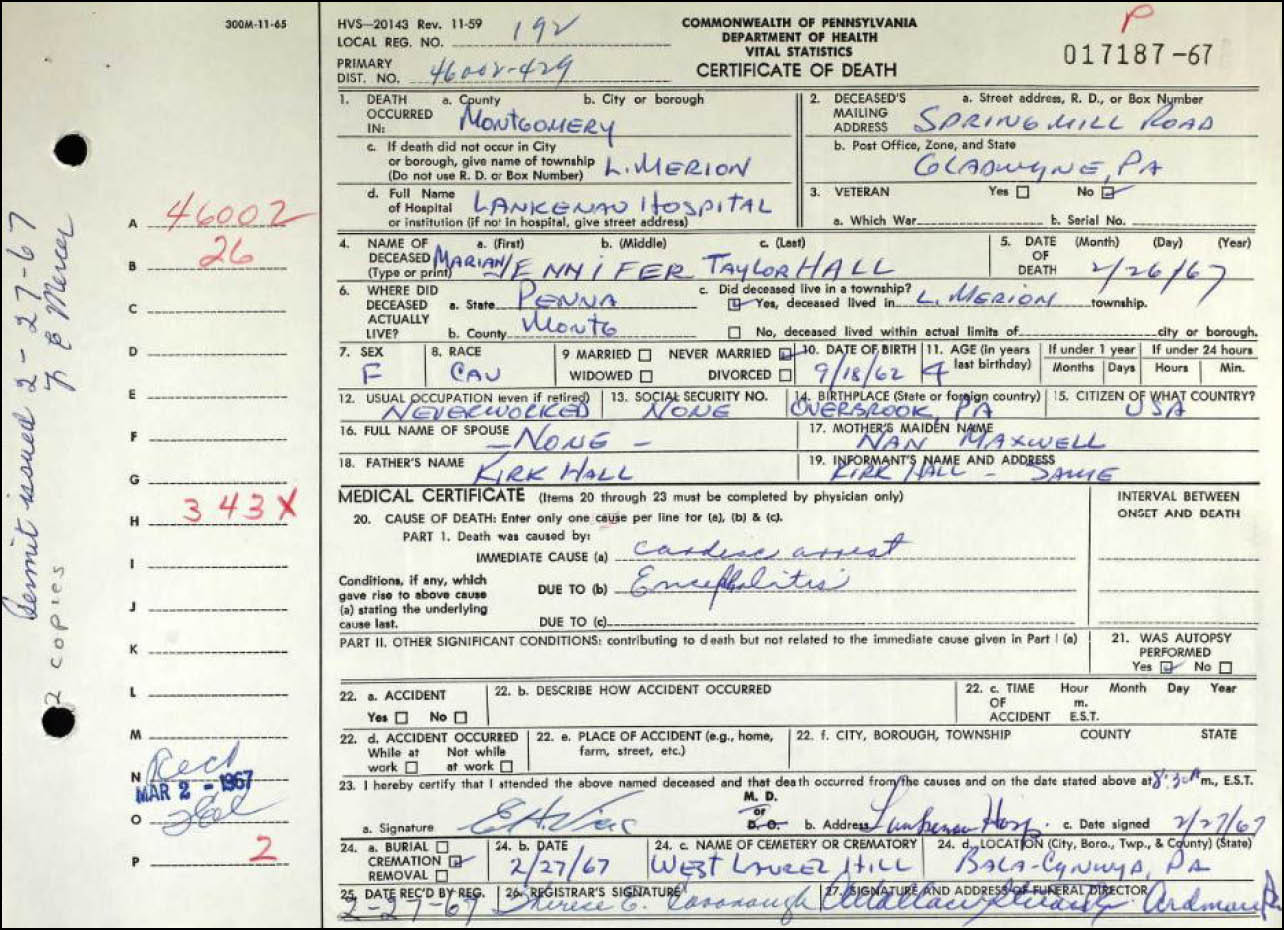 300M-11-65
HVS—20143 Rev. 11-59
LOCAL REG. NO. 192
PRIMARY
DIST. NO. 46002-429
COMMONWEALTH OF PENNSYLVANIA
DEPARTMENT OF HEALTH
VITAL STATISTICS
CERTIFICATE OF DEATH
P
017187-67
1. DEATH OCCURRED IN: a. County b. City or borough
MONTGOMERY
c. If death did not occur in City
or borough, give name of township
(Do not use R. D. or Box Number) L. MERION
d. Full Name
of Hospital LANKENAU HOSPITAL
or institution (if not in hospital, give street address)
2. DECEASED'S MAILING ADDRESS a. Street address, R. D., or Box Number
SPRING MILL ROAD
b. Post Office, Zone, and State
GLADWYNE, PA
3. VETERAN Yes No
a. Which War b. Serial No.
4. NAME OF DECEASED (Type or print) a. (First) b. (Middle) c. (Last)
MARIAN JENNIFER TAYLOR HALL
5. DATE OF DEATH (Month) (Day) (Year)
2/26/67
6. WHERE DID DECEASED ACTUALLY LIVE?
a. State PENNA
b. County MONTG
c. Did deceased live in a township?
Yes, deceased lived in L. MERION township.
No, deceased lived within actual limits of city or borough.
7. SEX
F
8. RACE
CAU
9 MARRIED NEVER MARRIED
WIDOWED DIVORCED
10. DATE OF BIRTH
9/18/62
11. AGE (in years last birthday)
4
If under 1 year
Months Days
If under 24 hours
Hours Min.
12. USUAL OCCUPATION (even if retired)
NEVER WORKED
13. SOCIAL SECURITY NO.
NONE
14. BIRTHPLACE (State or foreign country)
OVERBROOK, PA
15. CITIZEN OF WHAT COUNTRY?
USA
16. FULL NAME OF SPOUSE
- NONE -
17. MOTHER'S MAIDEN NAME
NAN MAXWELL
18. FATHER'S NAME
KIRK HALL
19. INFORMANT'S NAME AND ADDRESS
KIRK HALL - SAME
MEDICAL CERTIFICATE (Items 20 through 23 must be completed by physician only)
INTERVAL BETWEEN
ONSET AND DEATH
20. CAUSE OF DEATH: Enter only one cause per line for (a), (b) & (c).
PART 1. Death was caused by:
IMMEDIATE CAUSE (a) cardiac arrest
Conditions, if any, which
gave rise to above cause
(a) stating the underlying
cause last.
DUE TO (b) Encephalitis
DUE TO (c)
PART II. OTHER SIGNIFICANT CONDITIONS: contributing to death but not related to the immediate cause given in Part I (a)
21. WAS AUTOPSY
PERFORMED
Yes No
22. a. ACCIDENT
Yes No
22. b. DESCRIBE HOW ACCIDENT OCCURRED
22. c. TIME OF ACCIDENT Hour Month Day Year
m.
E.S.T.
22. d. ACCIDENT OCCURRED
While at work Not while at work
22. e. PLACE OF ACCIDENT (e.g., home,
farm, street, etc.)
22. f. CITY, BOROUGH, TOWNSHIP COUNTY STATE
23. I hereby certify that I attended the above named deceased and that death occurred from the causes and on the date stated above at 8:30A m., E.S.T.
a. Signature
M. D.
or
D. O.
b. Address Lankenau Hosp. c. Date signed 2/27/67
24. a. BURIAL
CREMATION
REMOVAL
24. b. DATE
2/27/67
24. c. NAME OF CEMETERY OR CREMATORY
WEST LAUREL HILL
24. d. LOCATION (City, Boro., Twp., & County) (State)
BALA-CYNWYD, PA
25. DATE REC'D BY REG.
2-27-67
26. REGISTRAR'S SIGNATURE
Cavanaugh
27. SIGNATURE AND ADDRESS OF FUNERAL DIRECTOR
Ardmore Pa
A 46002
B 26
C
D
E
F
G
H 343X
I
J
K
L
M
N Recd
MAR 2 - 1967
O
P 2
Permit issued 2-27-67
Mercer
2 copies